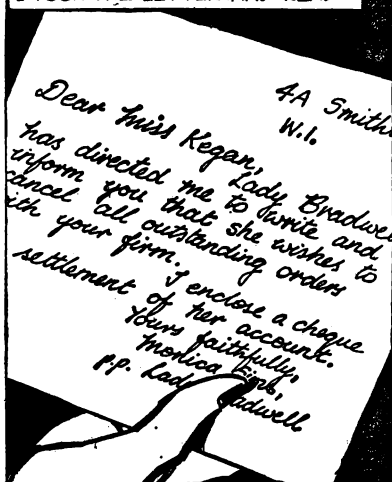 4A Smith
W.1.
Dear Miss Kegan,
Lady Bradwell
has directed me to write and
inform you that she wishes to
cancel all outstanding orders
with your firm.
I enclose a cheque
settlement of her account.
Yours faithfully,
Monica
p.p. Lady Bradwell.